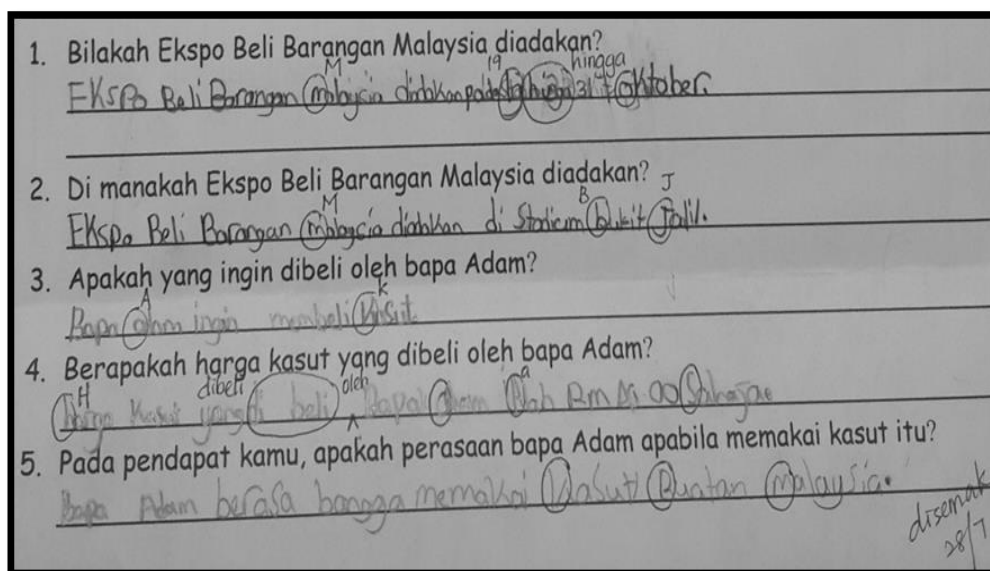 1. Bilakah Ekspo Beli Barangan Malaysia diadakan?
M 19 hingga
Ekspo Beli Barangan malaysia diadakan pada 31 oktober.
2. Di manakah Ekspo Beli Barangan Malaysia diadakan?
M B J
Ekspo Beli Barangan malaysia diadakan di Stadium bukit jalil.
3. Apakah yang ingin dibeli oleh bapa Adam?
A k
Bapa adam ingin membeli Kasut
4. Berapakah harga kasut yang dibeli oleh bapa Adam?
H dibeli oleh a
harga kasut yang di beli bapa adam RM 00 Sahaja
5. Pada pendapat kamu, apakah perasaan bapa Adam apabila memakai kasut itu?
Bapa Adam berasa bangga memakai Kasut Buatan malaysia.
disemak
28/7